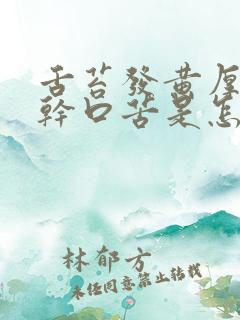 舌苔發黃厚
幹口苦是怎
林郁方
未经同意禁止转载